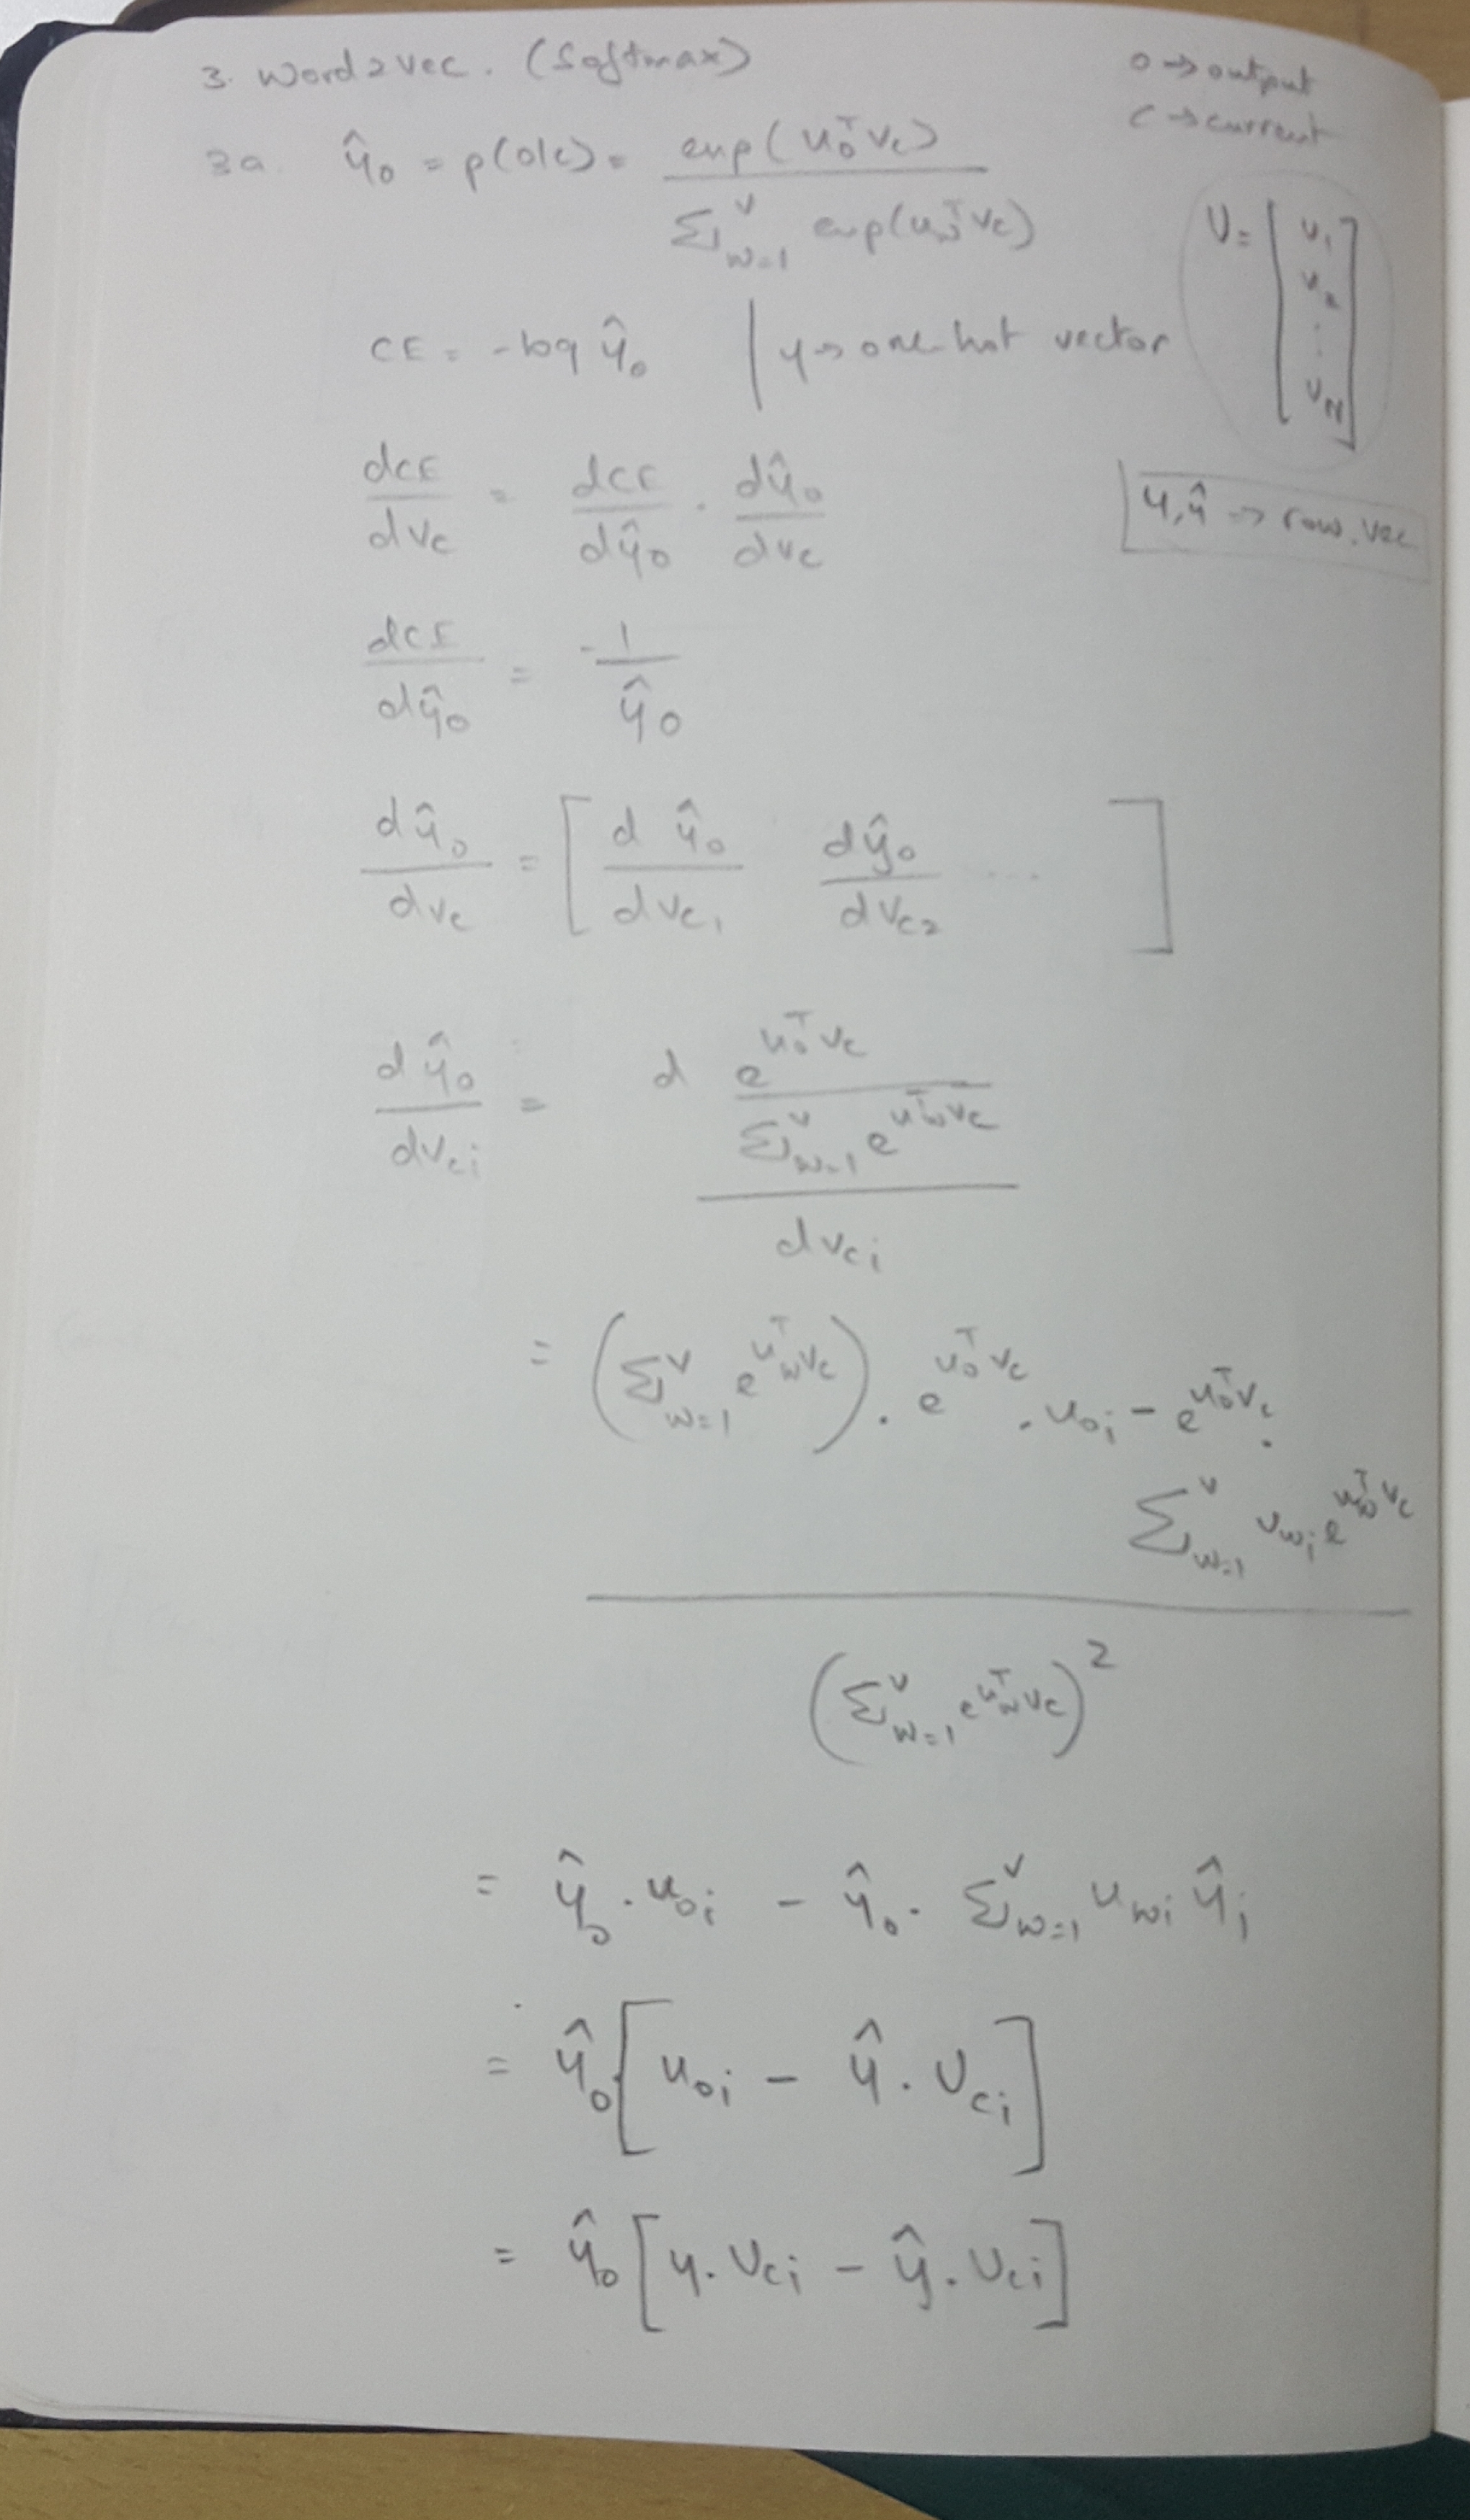 3. Word2vec. (Softmax)
o → output
c → current
3a. ŷₒ = p(o|c) = exp(uₒᵀ v_c) / Σ_{w=1}^{V} exp(u_wᵀ v_c)
U = [ u₁ u₂ ⋮ u_N ]
CE = -log ŷₒ | y → one-hot vector
dCE/dv_c = dCE/dŷₒ · dŷₒ/dv_c
y, ŷ → row.vec
dCE/dŷₒ = -1/ŷₒ
dŷₒ/dv_c = [ dŷₒ/dv_{c1} dŷₒ/dv_{c2} ... ]
dŷₒ/dv_{ci} = d (e^{uₒᵀ v_c} / Σ_{w=1}^{V} e^{u_wᵀ v_c}) / dv_{ci}
= ( (Σ_{w=1}^{V} e^{u_wᵀ v_c}) · e^{uₒᵀ v_c} · u_{oi} - e^{uₒᵀ v_c} ·
Σ_{w=1}^{V} u_{wi} e^{u_wᵀ v_c} )
/ (Σ_{w=1}^{V} e^{u_wᵀ v_c})²
= ŷₒ · u_{oi} - ŷₒ · Σ_{w=1}^{V} u_{wi} ŷ_i
= ŷₒ [ u_{oi} - ŷ . U_{ci} ]
= ŷₒ [ y . U_{ci} - ŷ . U_{ci} ]